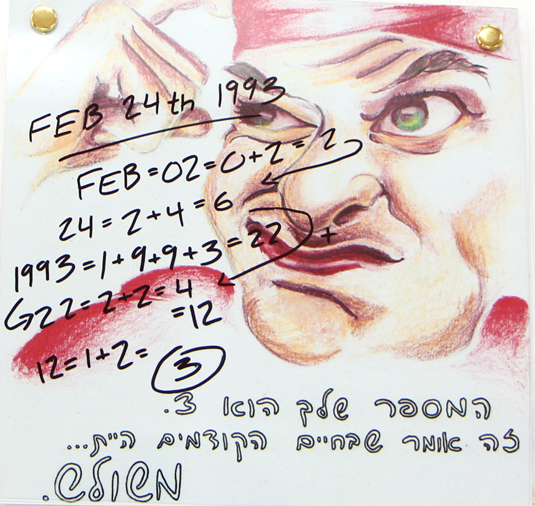 FEB 24th 1993
FEB=02=0+2=2
24=2+4=6
1993=1+9+9+3=22 +
22=2+2=4
=12
12=1+2= 3
המספר שלך הוא 3.
זה אומר שבחיים הקודמים היית...
משולש.